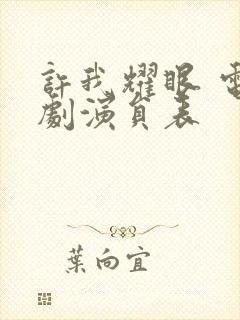 許我耀眼 電
劇演員表
葉向宜